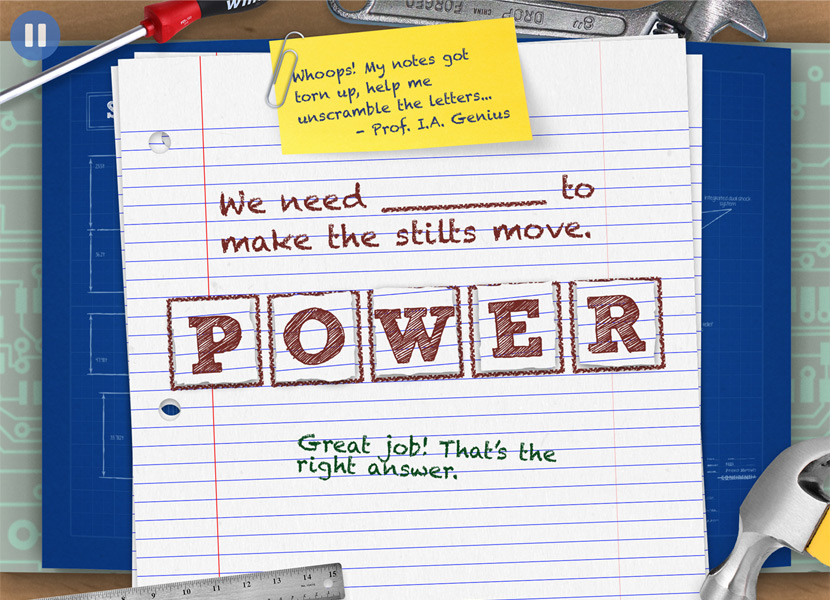 FORGED
DROP
CHINA
Whoops! My notes got
torn up, help me
unscramble the letters...
- Prof. I.A. Genius
We need ________ to
make the stilts move.
POWER
Great job! That's the
right answer.
8 9 10 11 12 13 14 15